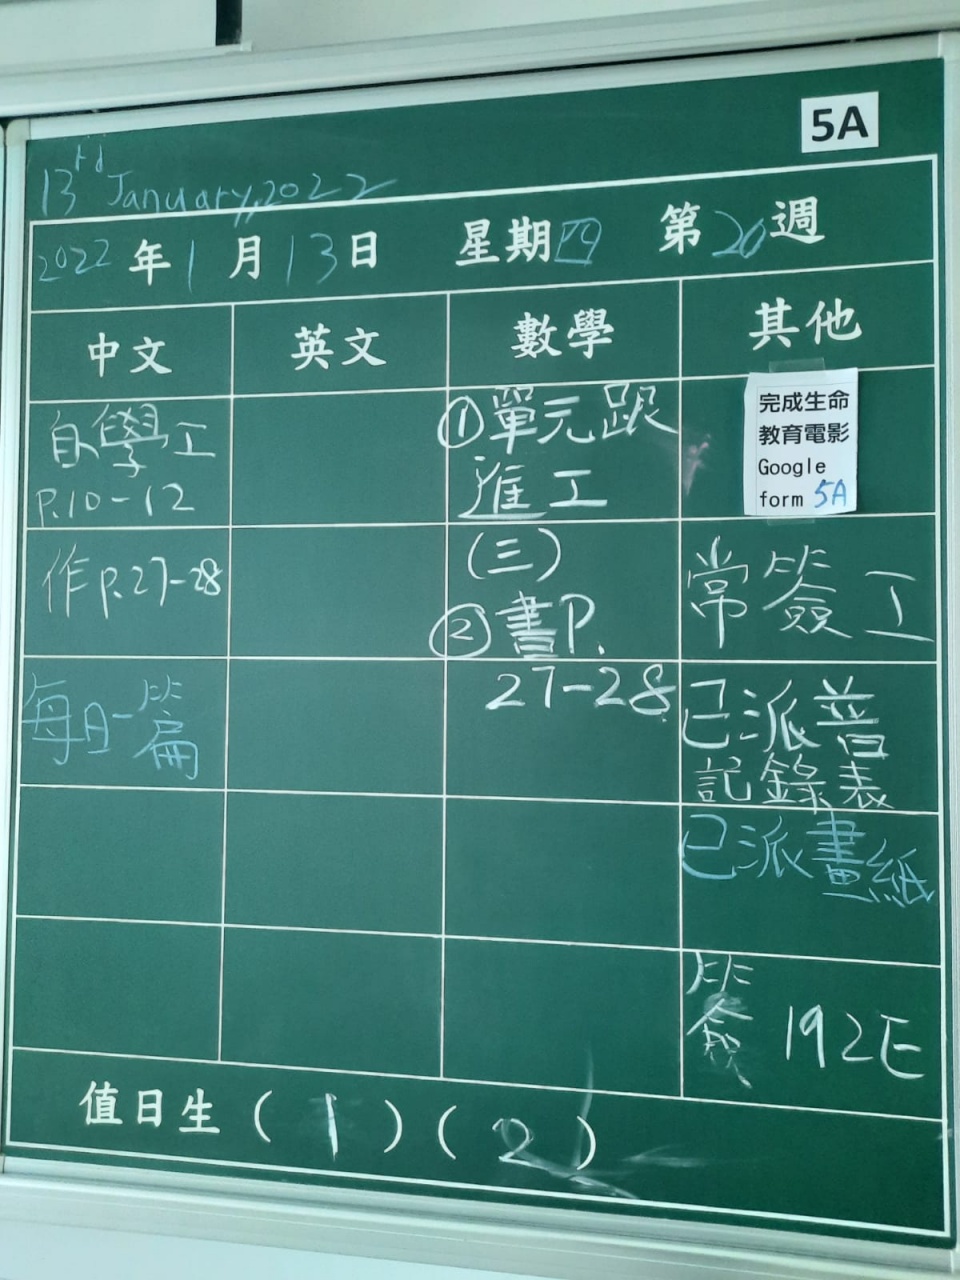 5A
13rd January, 2022
2022年1月13日 星期四 第20週
中文 英文 數學 其他
自學工
P.10-12
作P.27-28
每日一篇
①單元跟
進工
(三)
②書P.
27-28
完成生命
教育電影
Google
form 5A
常簽工
已派普
記錄表
已派畫紙
簽 192E
值日生(1)(2)